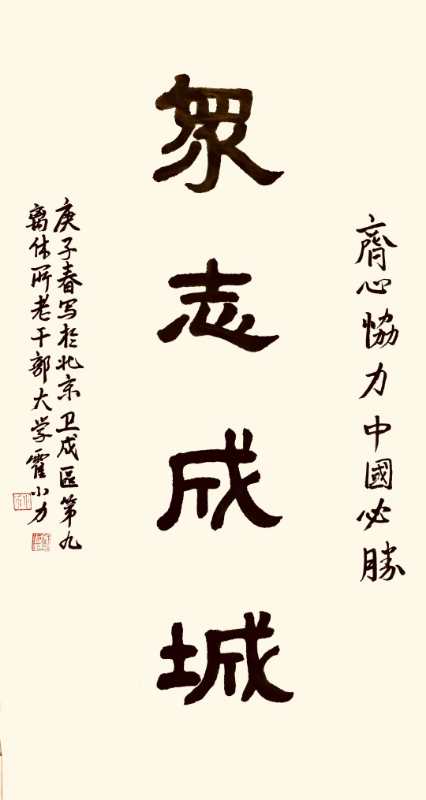 齊心恊力中國必勝
眾志成城
庚子春写於北京卫戍區第九
离休所老干部大学霍小力